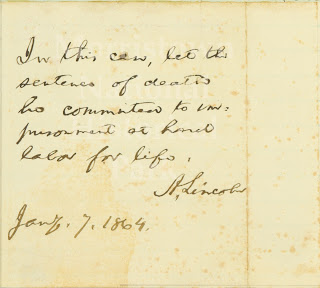 In this case, let the
sentence of death
be commuted to im-
prisonment at hard
labor for life.
A. Lincoln
Jany. 7. 1864.